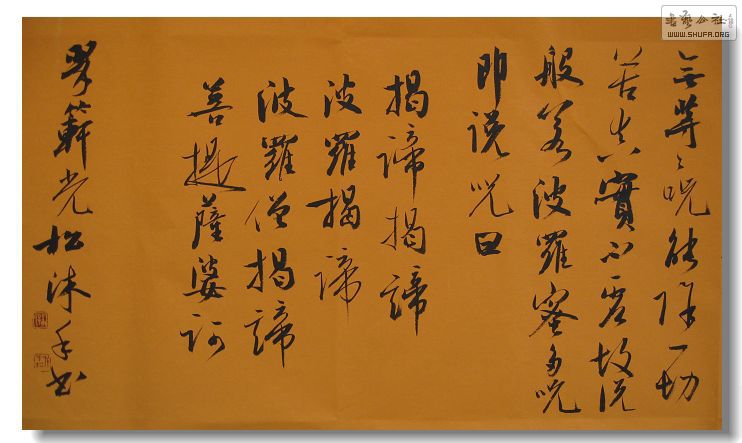 無等〻呪能除一切
苦真實不虛故說
般若波羅蜜多呪
即說呪曰
揭諦揭諦
波羅揭諦
波羅僧揭諦
菩提薩婆訶
光松沐手書
書藝公社
WWW.SHUFA.ORG